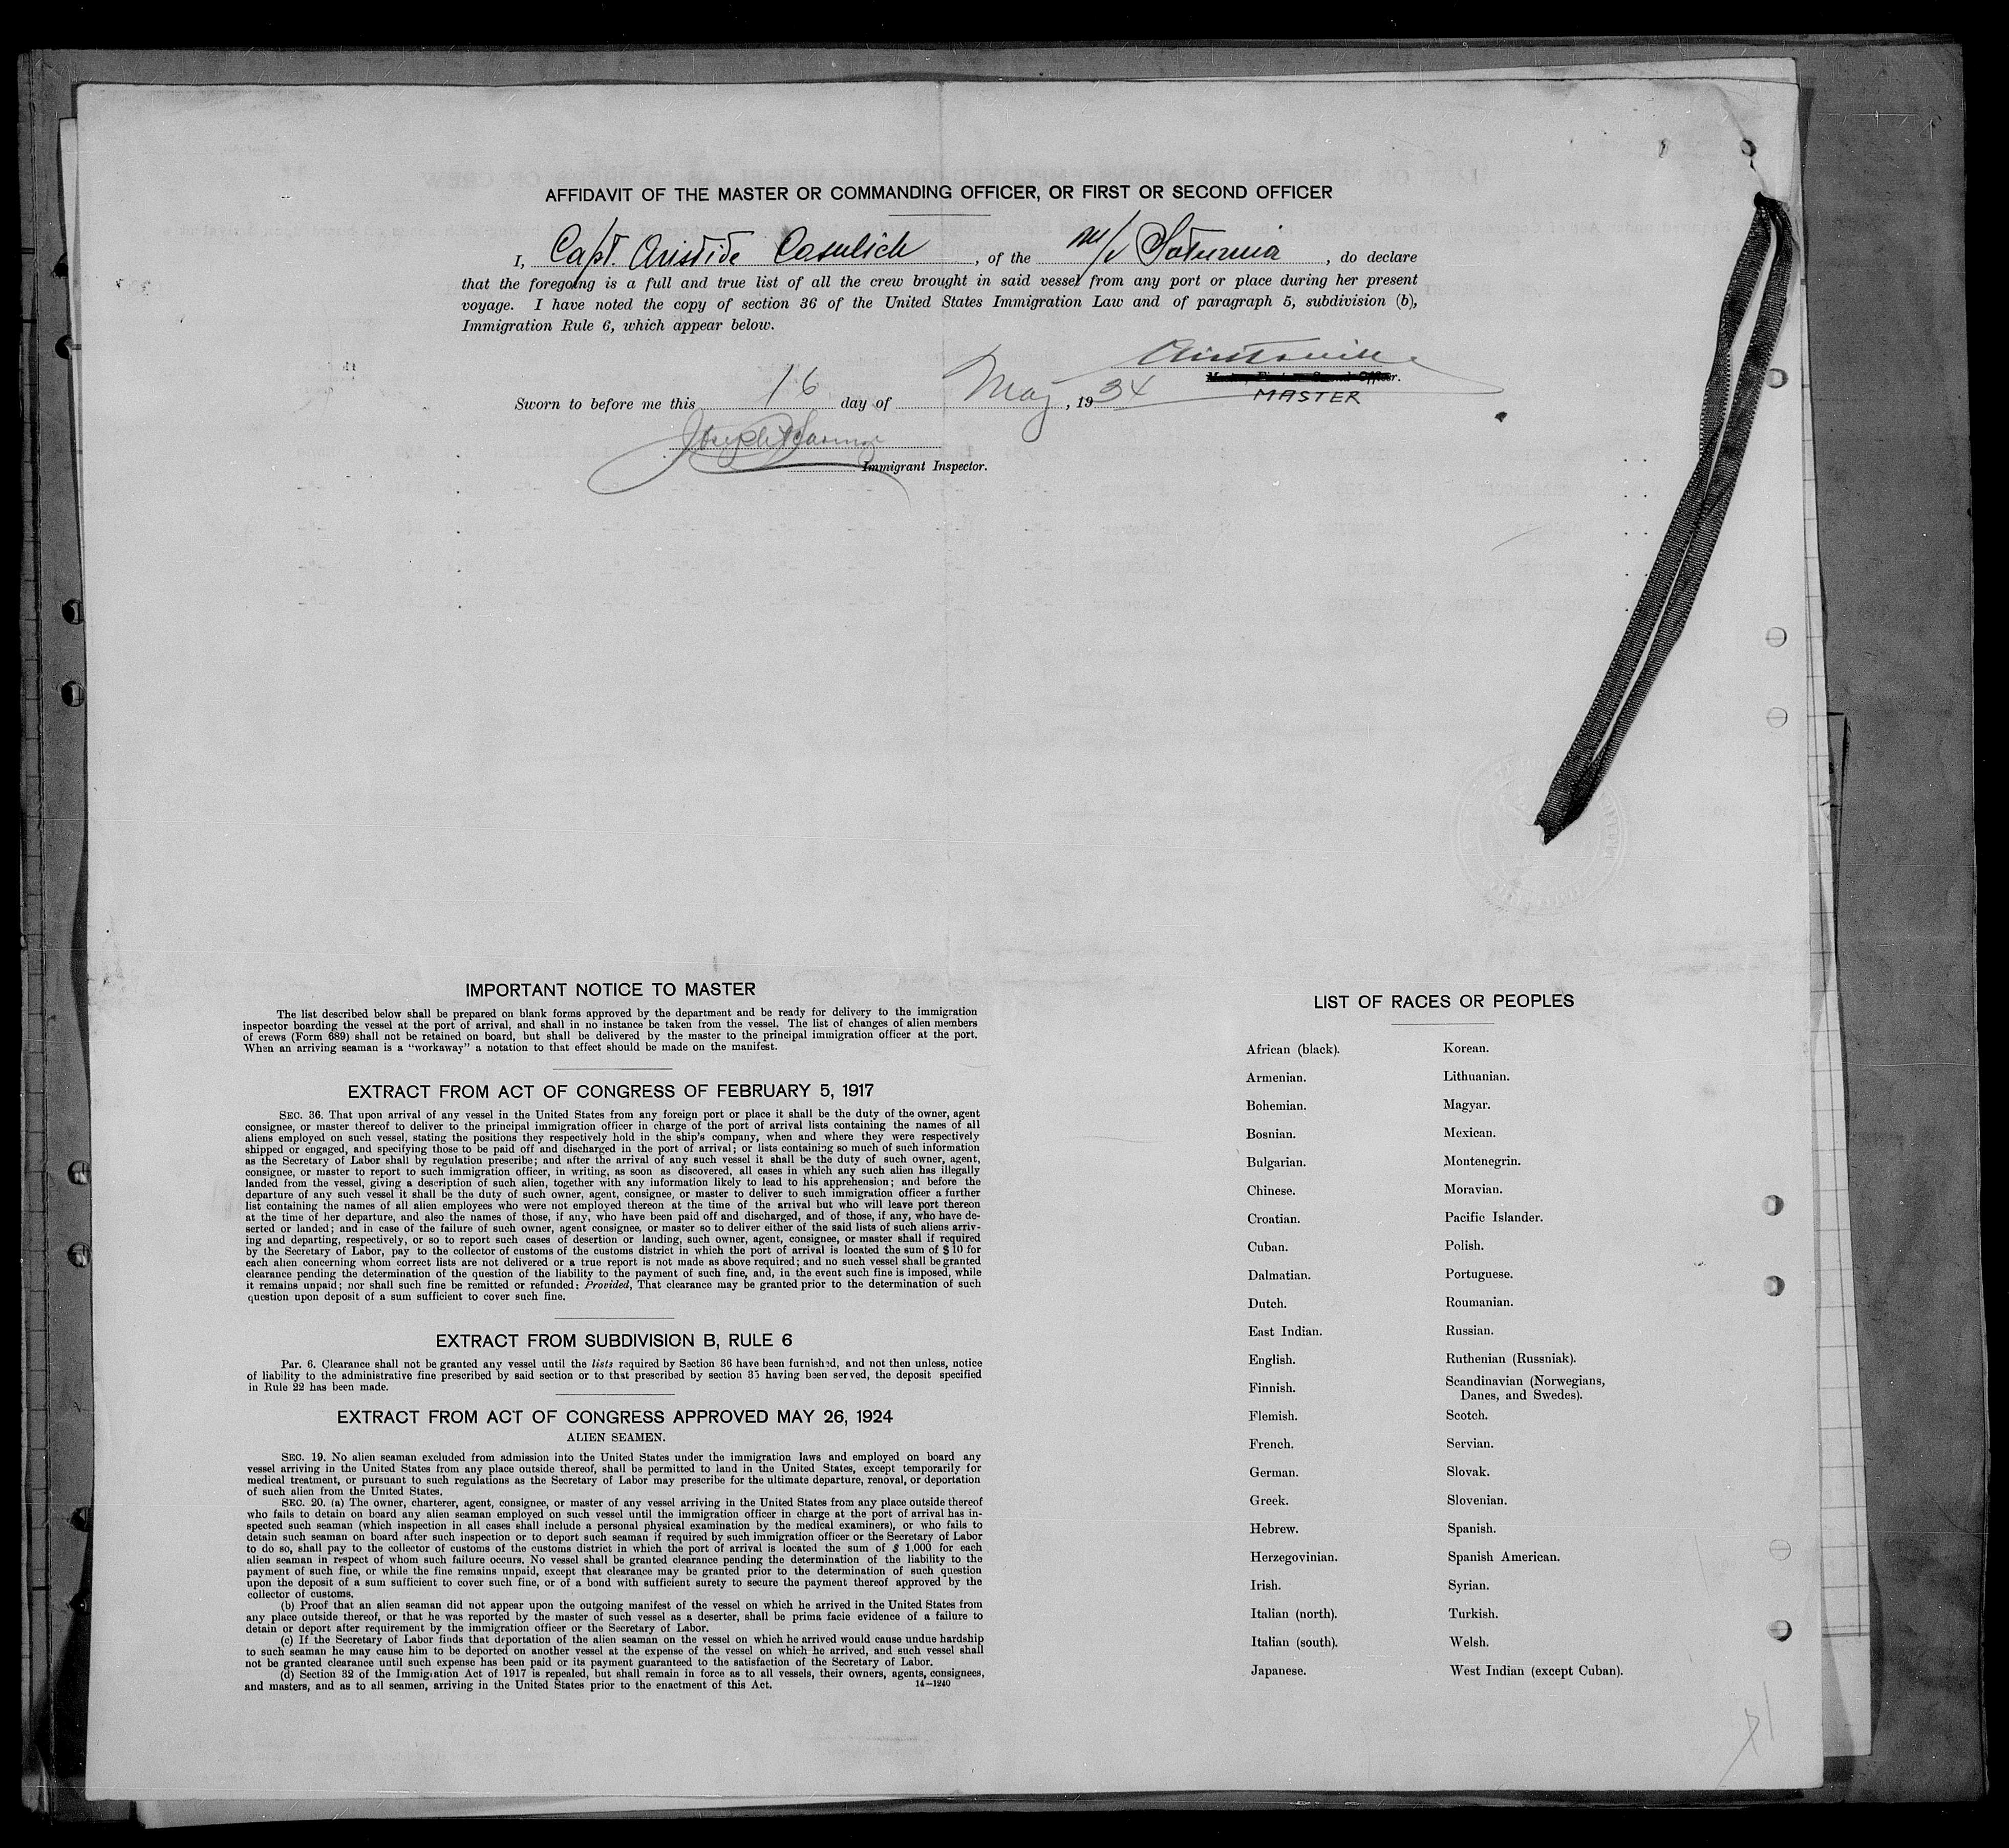 AFFIDAVIT OF THE MASTER OR COMMANDING OFFICER, OR FIRST OR SECOND OFFICER
I, Capt. Aristide Cosulich, of the m/v Saturnia, do declare
that the foregoing is a full and true list of all the crew brought in said vessel from any port or place during her present
voyage. I have noted the copy of section 36 of the United States Immigration Law and of paragraph 5, subdivision (b),
Immigration Rule 6, which appear below.
MASTER
Sworn to before me this 16 day of May, 1934
Immigrant Inspector.
IMPORTANT NOTICE TO MASTER
The list described below shall be prepared on blank forms approved by the department and be ready for delivery to the immigration
inspector boarding the vessel at the port of arrival, and shall in no instance be taken from the vessel. The list of changes of alien members
of crews (Form 689) shall not be retained on board, but shall be delivered by the master to the principal immigration officer at the port.
When an arriving seaman is a "workaway" a notation to that effect should be made on the manifest.
EXTRACT FROM ACT OF CONGRESS OF FEBRUARY 5, 1917
SEC. 36. That upon arrival of any vessel in the United States from any foreign port or place it shall be the duty of the owner, agent
consignee, or master thereof to deliver to the principal immigration officer in charge of the port of arrival lists containing the names of all
aliens employed on such vessel, stating the positions they respectively hold in the ship's company, when and where they were respectively
shipped or engaged, and specifying those to be paid off and discharged in the port of arrival; or lists containing so much of such information
as the Secretary of Labor shall by regulation prescribe; and after the arrival of any such vessel it shall be the duty of such owner, agent,
consignee, or master to report to such immigration officer, in writing, as soon as discovered, all cases in which any such alien has illegally
landed from the vessel, giving a description of such alien, together with any information likely to lead to his apprehension; and before the
departure of any such vessel it shall be the duty of such owner, agent, consignee, or master to deliver to such immigration officer a further
list containing the names of all alien employees who were not employed thereon at the time of the arrival but who will leave port thereon
at the time of her departure, and also the names of those, if any, who have been paid off and discharged, and of those, if any, who have de-
serted or landed; and in case of the failure of such owner, agent consignee, or master so to deliver either of the said lists of such aliens arriv-
ing and departing, respectively, or so to report such cases of desertion or landing, such owner, agent, consignee, or master shall if required
by the Secretary of Labor, pay to the collector of customs of the customs district in which the port of arrival is located the sum of $10 for
each alien concerning whom correct lists are not delivered or a true report is not made as above required; and no such vessel shall be granted
clearance pending the determination of the question of the liability to the payment of such fine, and, in the event such fine is imposed, while
it remains unpaid; nor shall such fine be remitted or refunded: Provided, That clearance may be granted prior to the determination of such
question upon deposit of a sum sufficient to cover such fine.
EXTRACT FROM SUBDIVISION B, RULE 6
Par. 6. Clearance shall not be granted any vessel until the lists required by Section 36 have been furnished, and not then unless, notice
of liability to the administrative fine prescribed by said section or to that prescribed by section 35 having been served, the deposit specified
in Rule 22 has been made.
EXTRACT FROM ACT OF CONGRESS APPROVED MAY 26, 1924
ALIEN SEAMEN.
SEC. 19. No alien seaman excluded from admission into the United States under the immigration laws and employed on board any
vessel arriving in the United States from any place outside thereof, shall be permitted to land in the United States, except temporarily for
medical treatment, or pursuant to such regulations as the Secretary of Labor may prescribe for the ultimate departure, renoval, or deportation
of such alien from the United States.
SEC. 20. (a) The owner, charterer, agent, consignee, or master of any vessel arriving in the United States from any place outside thereof
who fails to detain on board any alien seaman employed on such vessel until the immigration officer in charge at the port of arrival has in-
spected such seaman (which inspection in all cases shall include a personal physical examination by the medical examiners), or who fails to
detain such seaman on board after such inspection or to deport such seaman if required by such immigration officer or the Secretary of Labor
to do so, shall pay to the collector of customs of the customs district in which the port of arrival is located the sum of $ 1,000 for each
alien seaman in respect of whom such failure occurs. No vessel shall be granted clearance pending the determination of the liability to the
payment of such fine, or while the fine remains unpaid, except that clearance may be granted prior to the determination of such question
upon the deposit of a sum sufficient to cover such fine, or of a bond with sufficient surety to secure the payment thereof approved by the
collector of customs.
(b) Proof that an alien seaman did not appear upon the outgoing manifest of the vessel on which he arrived in the United States from
any place outside thereof, or that he was reported by the master of such vessel as a deserter, shall be prima facie evidence of a failure to
detain or deport after requirement by the immigration officer or the Secretary of Labor.
(c) If the Secretary of Labor finds that deportation of the alien seaman on the vessel on which he arrived would cause undue hardship
to such seaman he may cause him to be deported on another vessel at the expense of the vessel on which he arrived, and such vessel shall
not be granted clearance until such expense has been paid or its payment guaranteed to the satisfaction of the Secretary of Labor.
(d) Section 32 of the Immigration Act of 1917 is repealed, but shall remain in force as to all vessels, their owners, agents, consignees,
and masters, and as to all seamen, arriving in the United States prior to the enactment of this Act.
14—1240
LIST OF RACES OR PEOPLES
African (black).
Armenian.
Bohemian.
Bosnian.
Bulgarian.
Chinese.
Croatian.
Cuban.
Dalmatian.
Dutch.
East Indian.
English.
Finnish.
Flemish.
French.
German.
Greek.
Hebrew.
Herzegovinian.
Irish.
Italian (north).
Italian (south).
Japanese.
Korean.
Lithuanian.
Magyar.
Mexican.
Montenegrin.
Moravian.
Pacific Islander.
Polish.
Portuguese.
Roumanian.
Russian.
Ruthenian (Russniak).
Scandinavian (Norwegians,
Danes, and Swedes).
Scotch.
Servian.
Slovak.
Slovenian.
Spanish.
Spanish American.
Syrian.
Turkish.
Welsh.
West Indian (except Cuban).